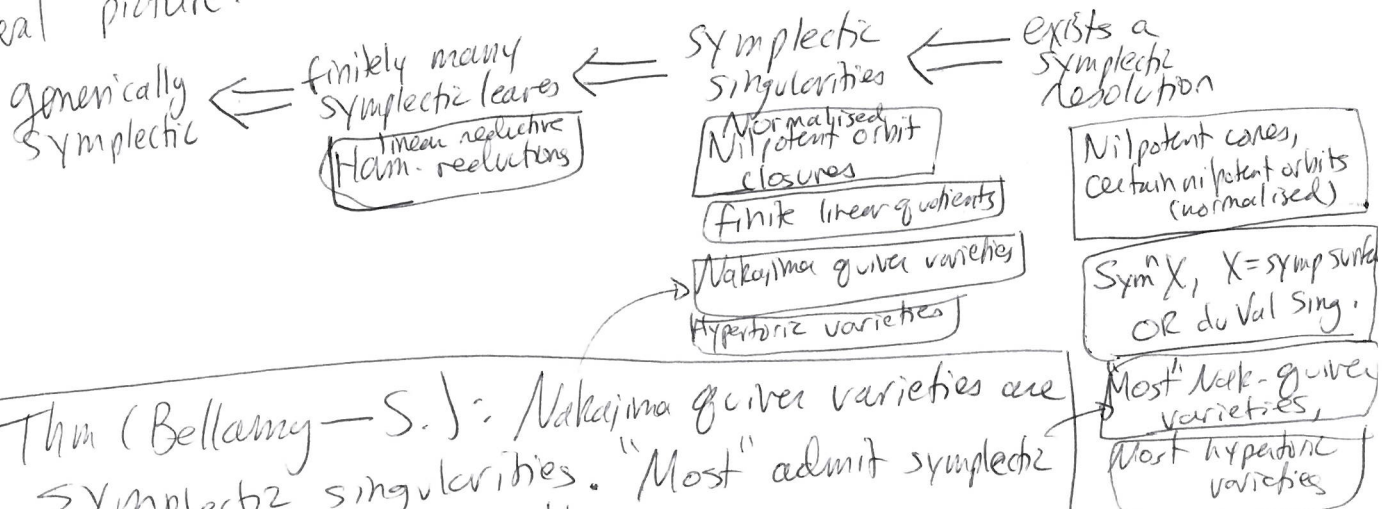 picture
generically
symplectic
⟸
finitely many
symplectic leaves
linear reductive
Ham. reductions
⟸
symplectic
singularities
Normalised
Nilpotent orbit
closures
finite linear quotients
Nakajima quiver varieties
Hypertoric varieties
⟸
exists a
symplectic
resolution
Nilpotent cones,
certain nilpotent orbits
(normalised)
Symⁿ X, X = symp surfa
OR du Val Sing.
"Most" Nak-quiver
varieties,
Most hypertoric
varieties
Thm (Bellamy—S.): Nakajima quiver varieties are
symplectic singularities. "Most" admit symplectic